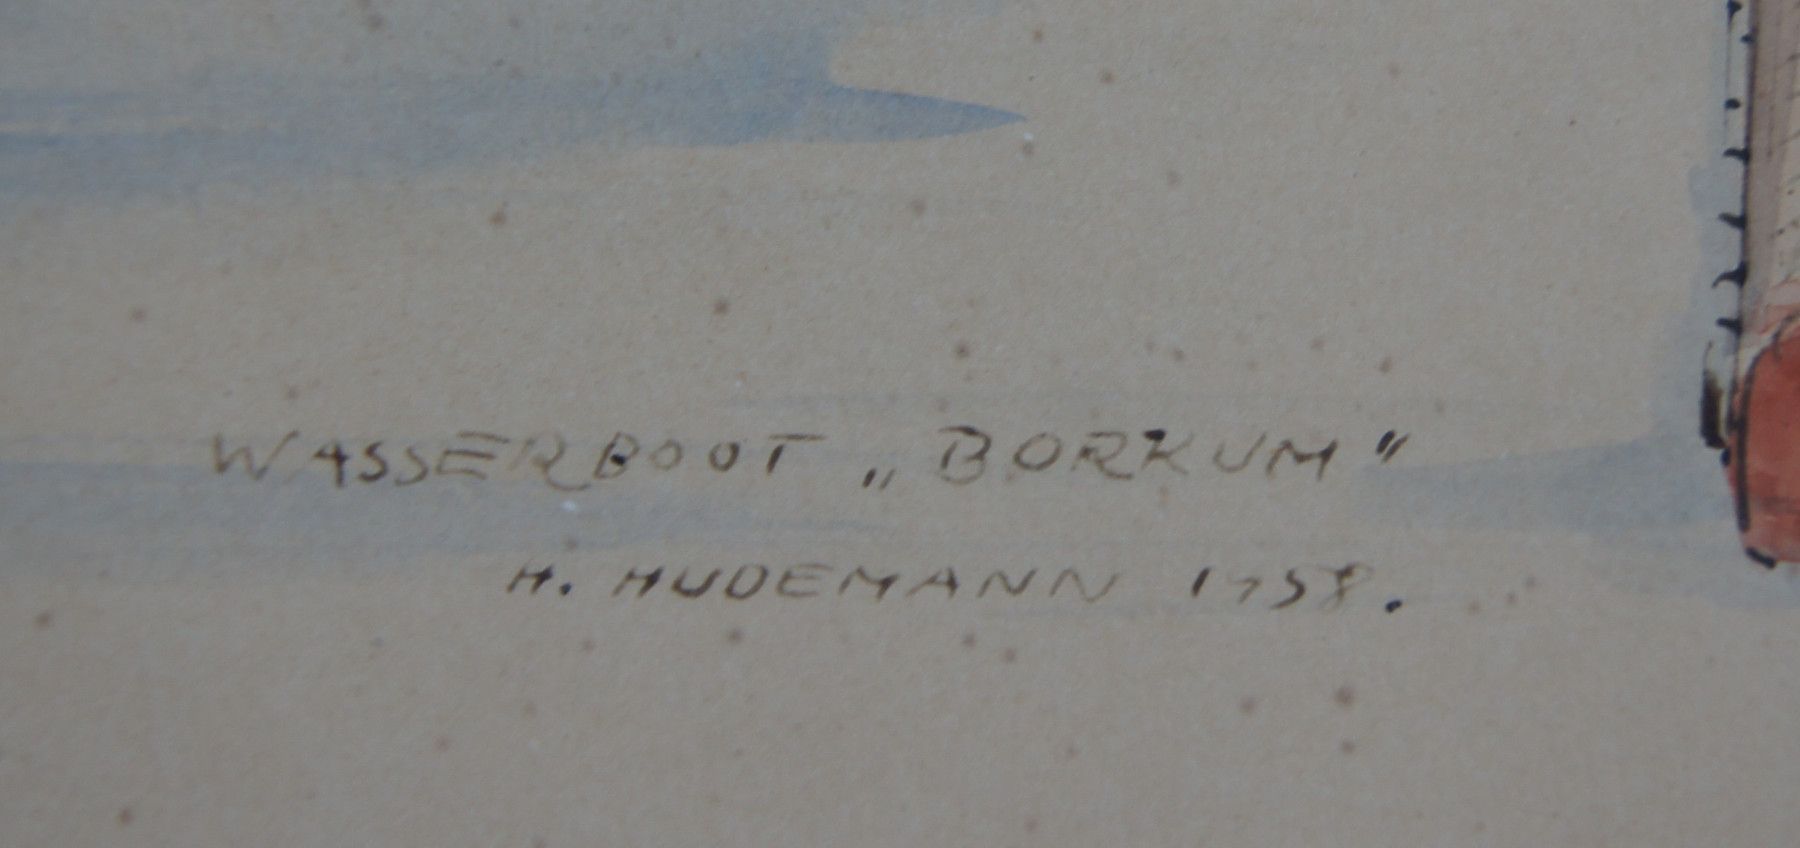 WASSERBOOT „BORKUM"
H. HUDEMANN 1958.